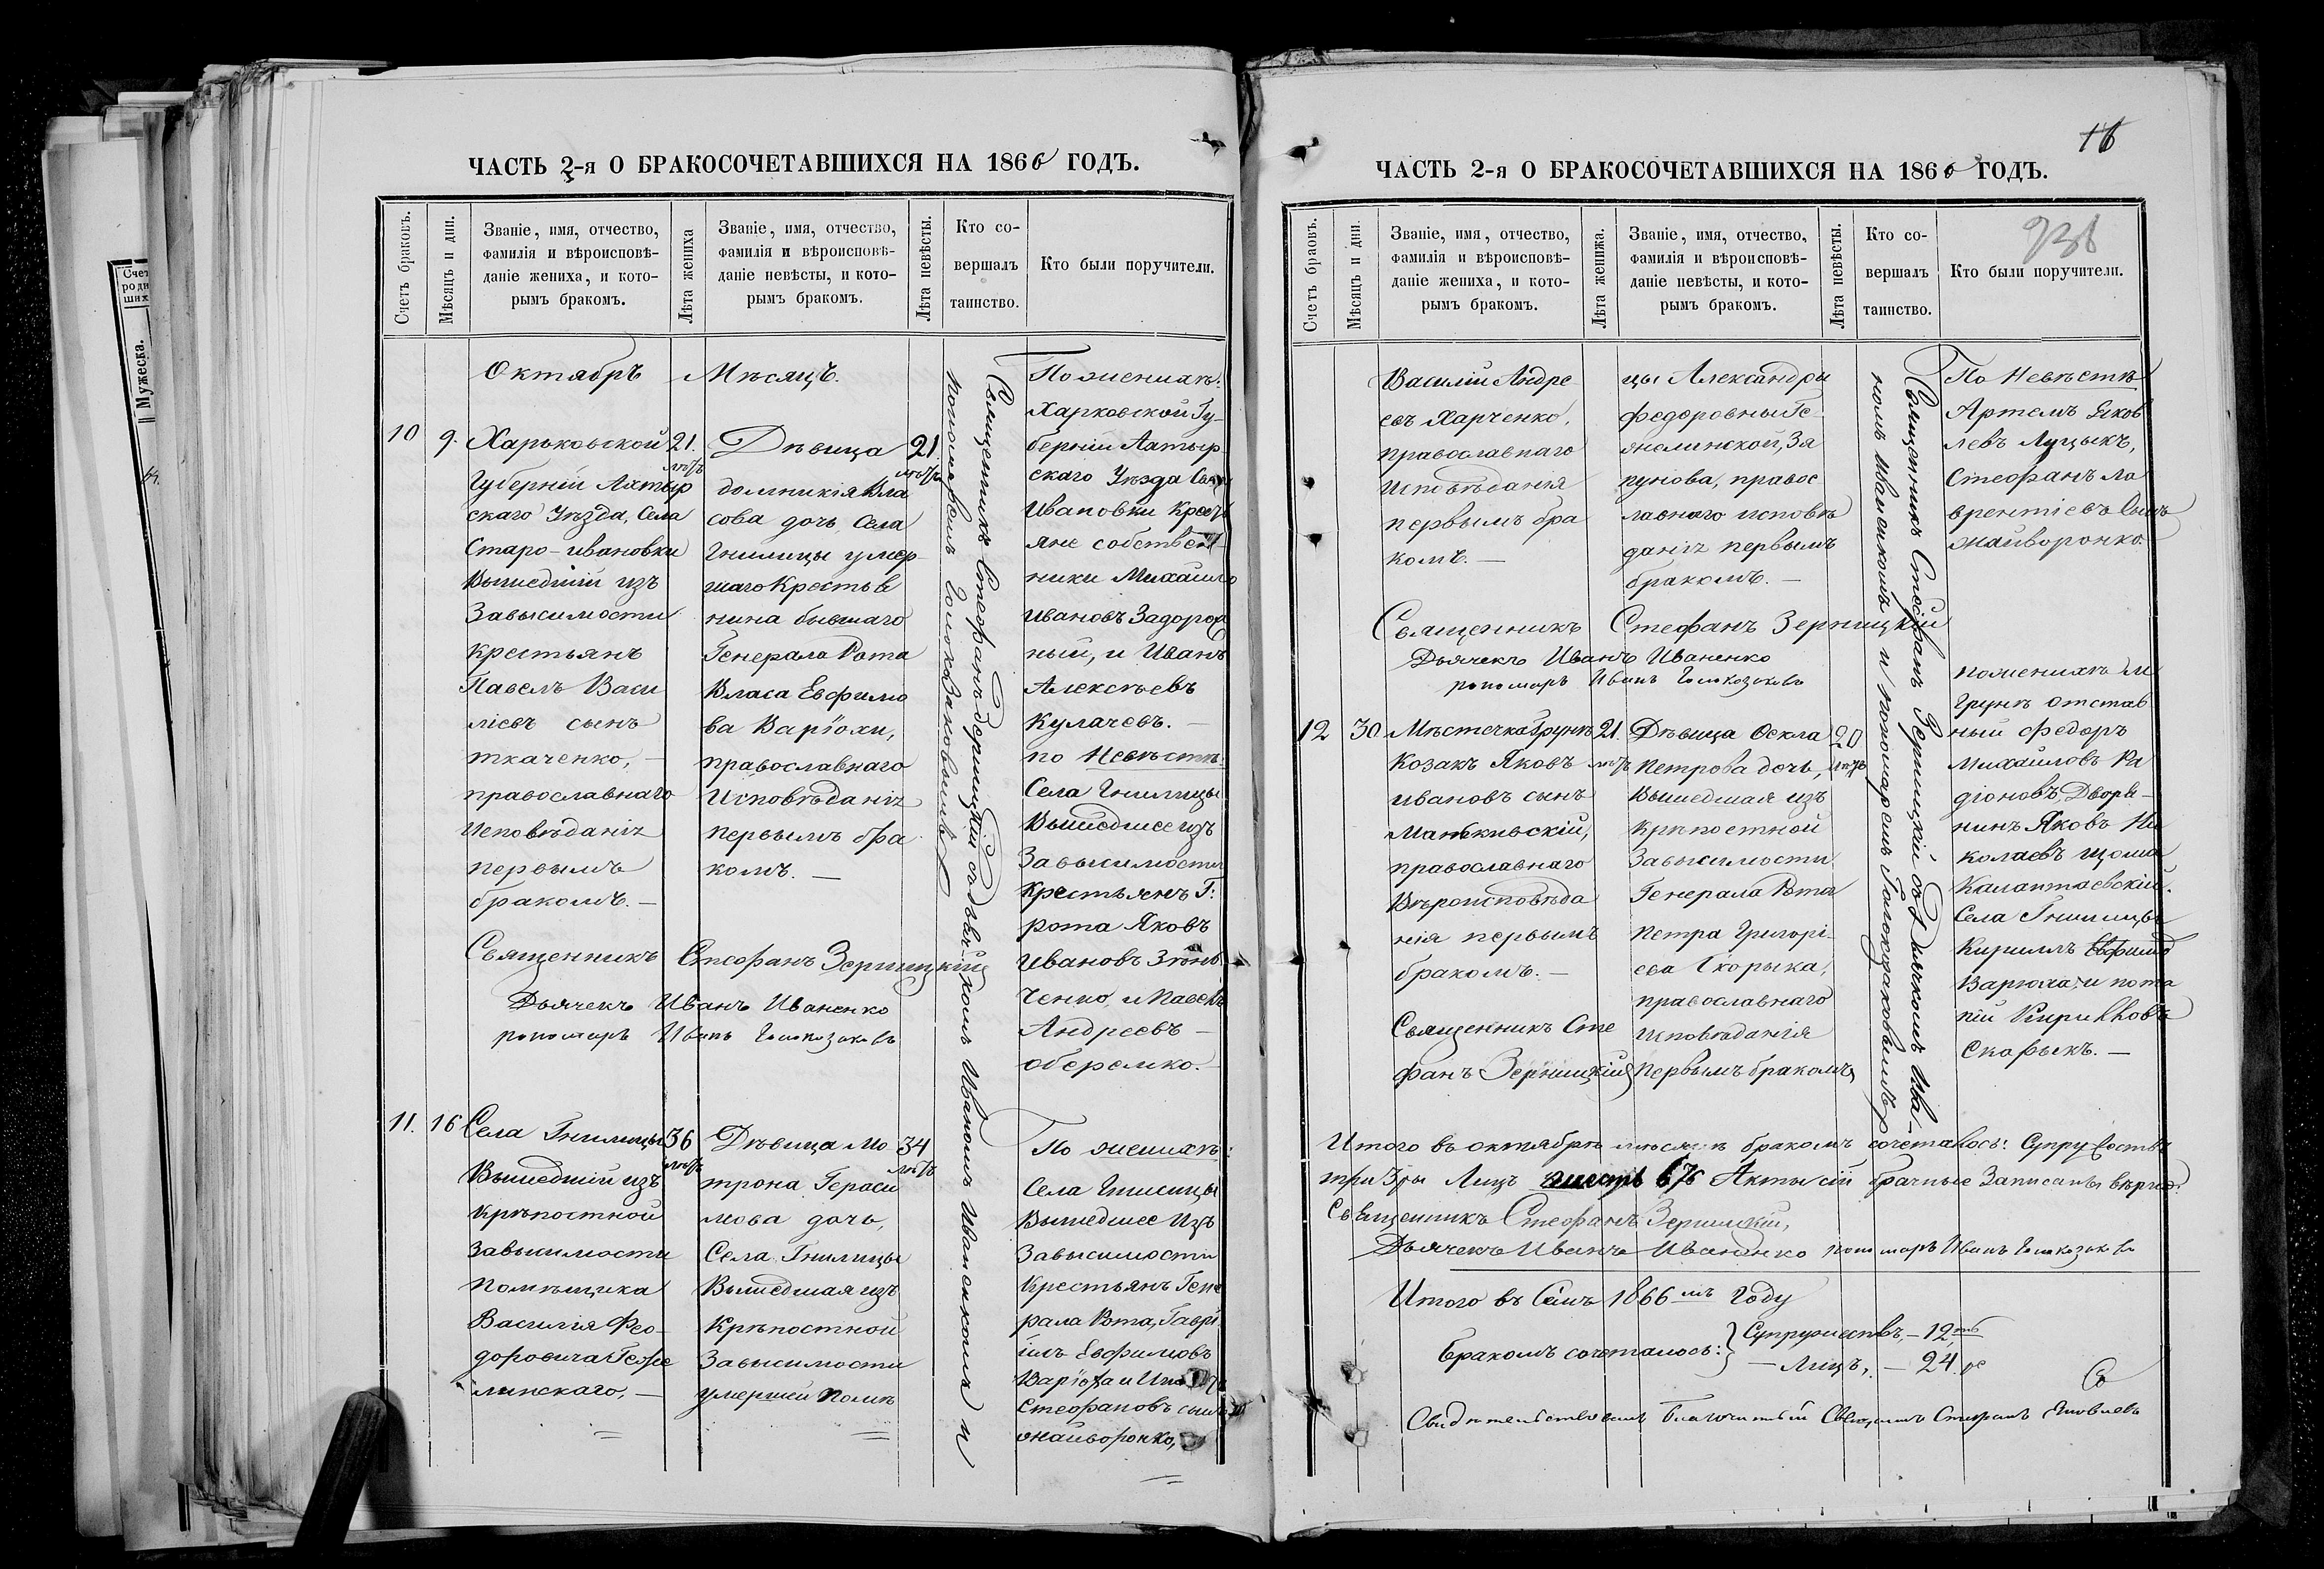 ЧАСТЬ 2-я О БРАКОСОЧЕТАВШИХСЯ НА 1866 ГОДЪ.
Счетъ браковъ.
Мѣсяцъ и дни.
Званіе, имя, отчество,
фамилія и вѣроисповѣ-
даніе жениха, и кото-
рымъ бракомъ.
Лѣта жениха
Званіе, имя, отчество,
фамилія и вѣроисповѣ-
даніе невѣсты, и кото-
рымъ бракомъ.
Лѣта невѣсты.
Кто со-
вершалъ
таинство.
Кто были поручители.
Октябрь Мѣсяцъ.
10
9.
Харьковской
Губерніи Ахтыр
скаго Уѣзда, Села
Старо-ивановки
Вышедшій изъ
Завысимости
крестьянъ
Павелъ Васи
ліевъ сынъ
ткаченко, —
православнаго
Исповѣданія
первымъ
бракомъ. —
21.
лѣтъ
Дѣвица
домникія Вла
сова дочь, Села
Гнилицы умер
шаго Крестья
нина бывшаго
Генерала Рота
Власа Евфимо
ва Варіохи,
православнаго
Исповѣданія
первымъ бра
комъ. —
21.
лѣтъ
Священникъ Стефанъ Зерницкій съ дьячкомъ Иваномъ Иваненкомъ и
пономаремъ Голоказаковымъ
По женихѣ:
Харковской Гу-
берніи Ахтыр
скаго Уѣзда
Ивановки Кресть
яне собствен-
ники Михаилъ
Ивановъ Задорож
ный, и Иванъ
Алексѣевъ
Кулачевъ. —
по Невѣстѣ
Села Гнилицы
Вышедшее изъ
Завысимости
Крестьянъ Г:
рота Яковъ
Ивановъ
ченко, и Павелъ
Андреевъ —
оберемко. —
Священникъ Стефанъ Зерницкій
Дьячекъ Иванъ Иваненко
пономарь Иванъ Голоказаковъ
11.
16
Села Гнилицы
Вышедшій изъ
крѣпостной
завысимости
помѣщика
Василія Фео-
доровича Ге
линскаго, —
36
лѣтъ
Дѣвица Мо
трона Гераси
мова дочь,
Села Гнилицы
Вышедшая изъ
Крѣпостной
Завысимости
умершей помѣ
34
лѣтъ
По женихѣ:
Села Гнилицы
Вышедшее Изъ
Завысимости
Крестьянъ Гене
рала Рота, Гаврі
илъ Евфимовъ
Варіоха и
Стефановъ сынъ
Жайворонко,
ЧАСТЬ 2-я О БРАКОСОЧЕТАВШИХСЯ НА 1866 ГОДЪ.
Счетъ браовъ.
Мѣсяцъ и дни.
Званіе, имя, отчество,
фамилія и вѣроисповѣ-
даніе жениха, и кото-
рымъ бракомъ.
Лѣта женижа.
Званіе, имя, отчество,
фамилія и вѣроисповѣ-
даніе невѣсты, и кото-
рымъ бракомъ.
Лѣта невѣсты.
Кто со-
вершалъ
таинство.
Кто были поручители.
Василій Андре
евъ Харченко,
православнаго
Исповѣданія
первымъ бра
комъ. —
цы Александры
Федоровны Ге
Зя
пунова, правос
лавнаго исповѣ
данія первымъ
бракомъ. —
Священникъ Стефанъ Зерницкій съ дьячкомъ Ива-
номъ Иваненкомъ и пономаремъ Голоказаковымъ
По Невѣстѣ
Артемъ Яков
левъ Луцыкъ,
Стефанъ Ла
врентіевъ Сынъ
Жайворонко.
Священникъ Стефанъ Зерницкій
Дьячекъ Иванъ Иваненко
пономарь Иванъ Голоказаковъ
12
30
Мѣстечка Грунѣ
Козакъ Яковъ
ивановъ сынъ
Маньківскій,
православнаго
Вѣроисповѣда
нія первымъ
бракомъ. —
Священникъ Сте
фанъ Зерницкій
21.
лѣтъ
Дѣвица Фекла
Петрова дочь,
Вышедшая изъ
крѣпостной
Завысимости
Генерала Рота
Петра Григорі
ева Скорыка,
православнаго
исповѣданія
Первымъ бракомъ
20
лѣтъ
По женихѣ М
Грунѣ отстав
ный Федоръ
Михайловъ Ра
діоновъ, Дворя-
нинъ Яковъ Ни
колаевъ
Калантаевскій.
Села Гнилицы
Кириллъ Евфимов
Варюха, и пота
пій Кириловъ
Скорыкъ. —
Итого въ октябрѣ мѣсяцѣ бракомъ сочеталось: Супружествъ
три 3 ри Лицъ шесть 6 Акты сіи брачные Записаны вѣрно:
Священникъ Стефанъ Зерницкій,
Дьячекъ Иванъ Иваненко пономарь Иванъ Голоказаковъ
Итого въ Семъ 1866мъ Году
Бракомъ сочеталось: Супружествъ, — 12
— Лицъ, — 24.
Свидѣтельствовалъ Благочинный Священникъ Стефанъ Яновлевъ